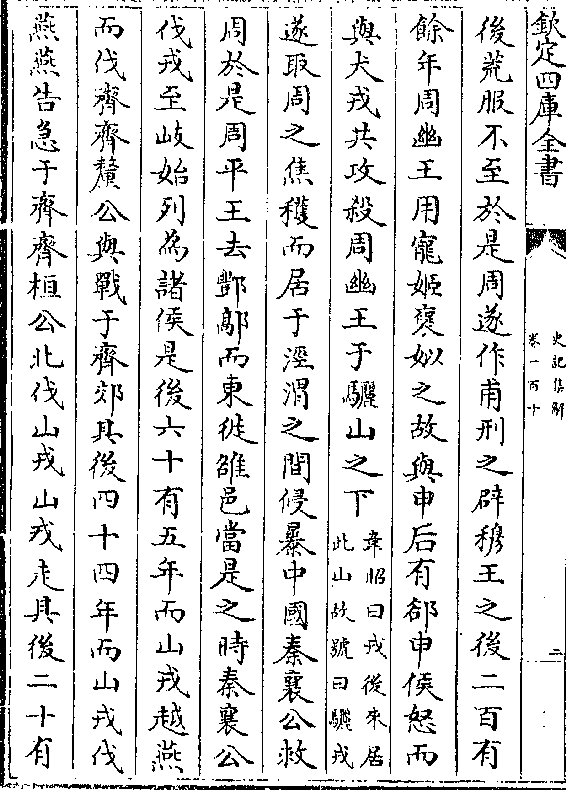 欽定四庫全書
史記集解
卷一百十
二
後荒服不至於是周遂作甫刑之辟穆王之後二百有
餘年周幽王用寵姬褒姒之故與申后有郤申侯怒而
與犬戎共攻殺周幽王于驪山之下
韋昭曰戎後來居
此山故號曰驪戎
遂取周之焦穫而居于涇渭之間侵暴中國秦襄公救
周於是周平王去酆鄗而東徙雒邑當是之時秦襄公
伐戎至岐始列為諸侯是後六十有五年而山戎越燕
而伐齊齊釐公與戰于齊郊其後四十四年而山戎伐
燕燕告急于齊齊桓公北伐山戎山戎走其後二十有